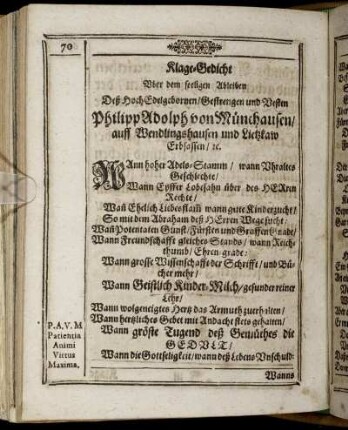 70
Klage-Gedicht
Vber dem seeligen Ableiben
Deß HochEdelgebornen/Gestrengen und Vesten
Philipp Adolph von Münchausen/
auff Wendlingshausen und Lietzkaw
Erbsassen/ ꝛc.
WAnn hoher Adels-Stamm/ wann Vhraltes
Geschlechte/
Wann Eyffer Lobesahn über des HERren
Rechte/
Wañ Ehelich Liebes wann gute Kinderzucht/
So mit dem Abraham deß HErren Wege sucht.
Wañ Potentaten Gunst/Fürsten und Graffen Gnade/
Wann Freundschafft gleiches Stands/ wann Reich-
thumb/ Ehren-grade:
Wann grosse Wissenschafft der Schriffte/ und Bü-
cher mehr/
Wann Geistlich Kinder-Milch/gesunder reiner
Lehr/
Wann wolgeneigtes Hertz das Armuth zuerhalten/
Wann hertzliches Gebet mit Andacht stets gehalten/
Wann gröste Tugend deß Gemüthes die
GEDVLT/
Wann die Gottseligkeit/ wann deß Lebens Vnschuld:
P.A.V.M
Patientia
Animi
Virtus
Maxima.
Wanns